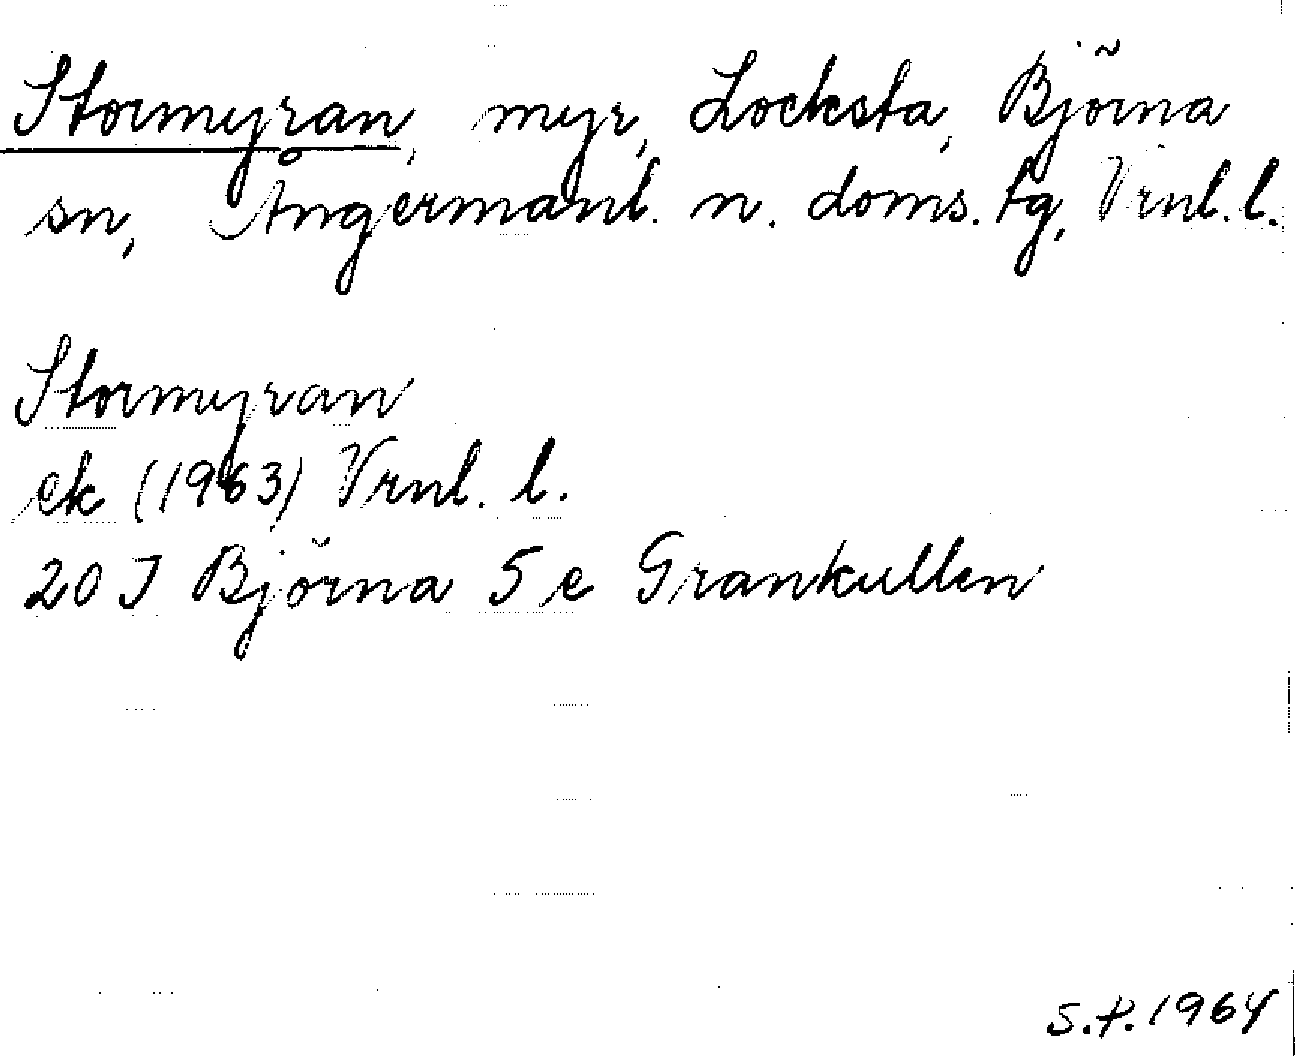 Stormyran, myr, Locksta, Björna
sn, Ångermanl. n. doms. tg, Vrnl. l.
Stormyran
ek (1963) Vrnl. l.
20 J Björna 5 e Grankullen
S.P. 1964